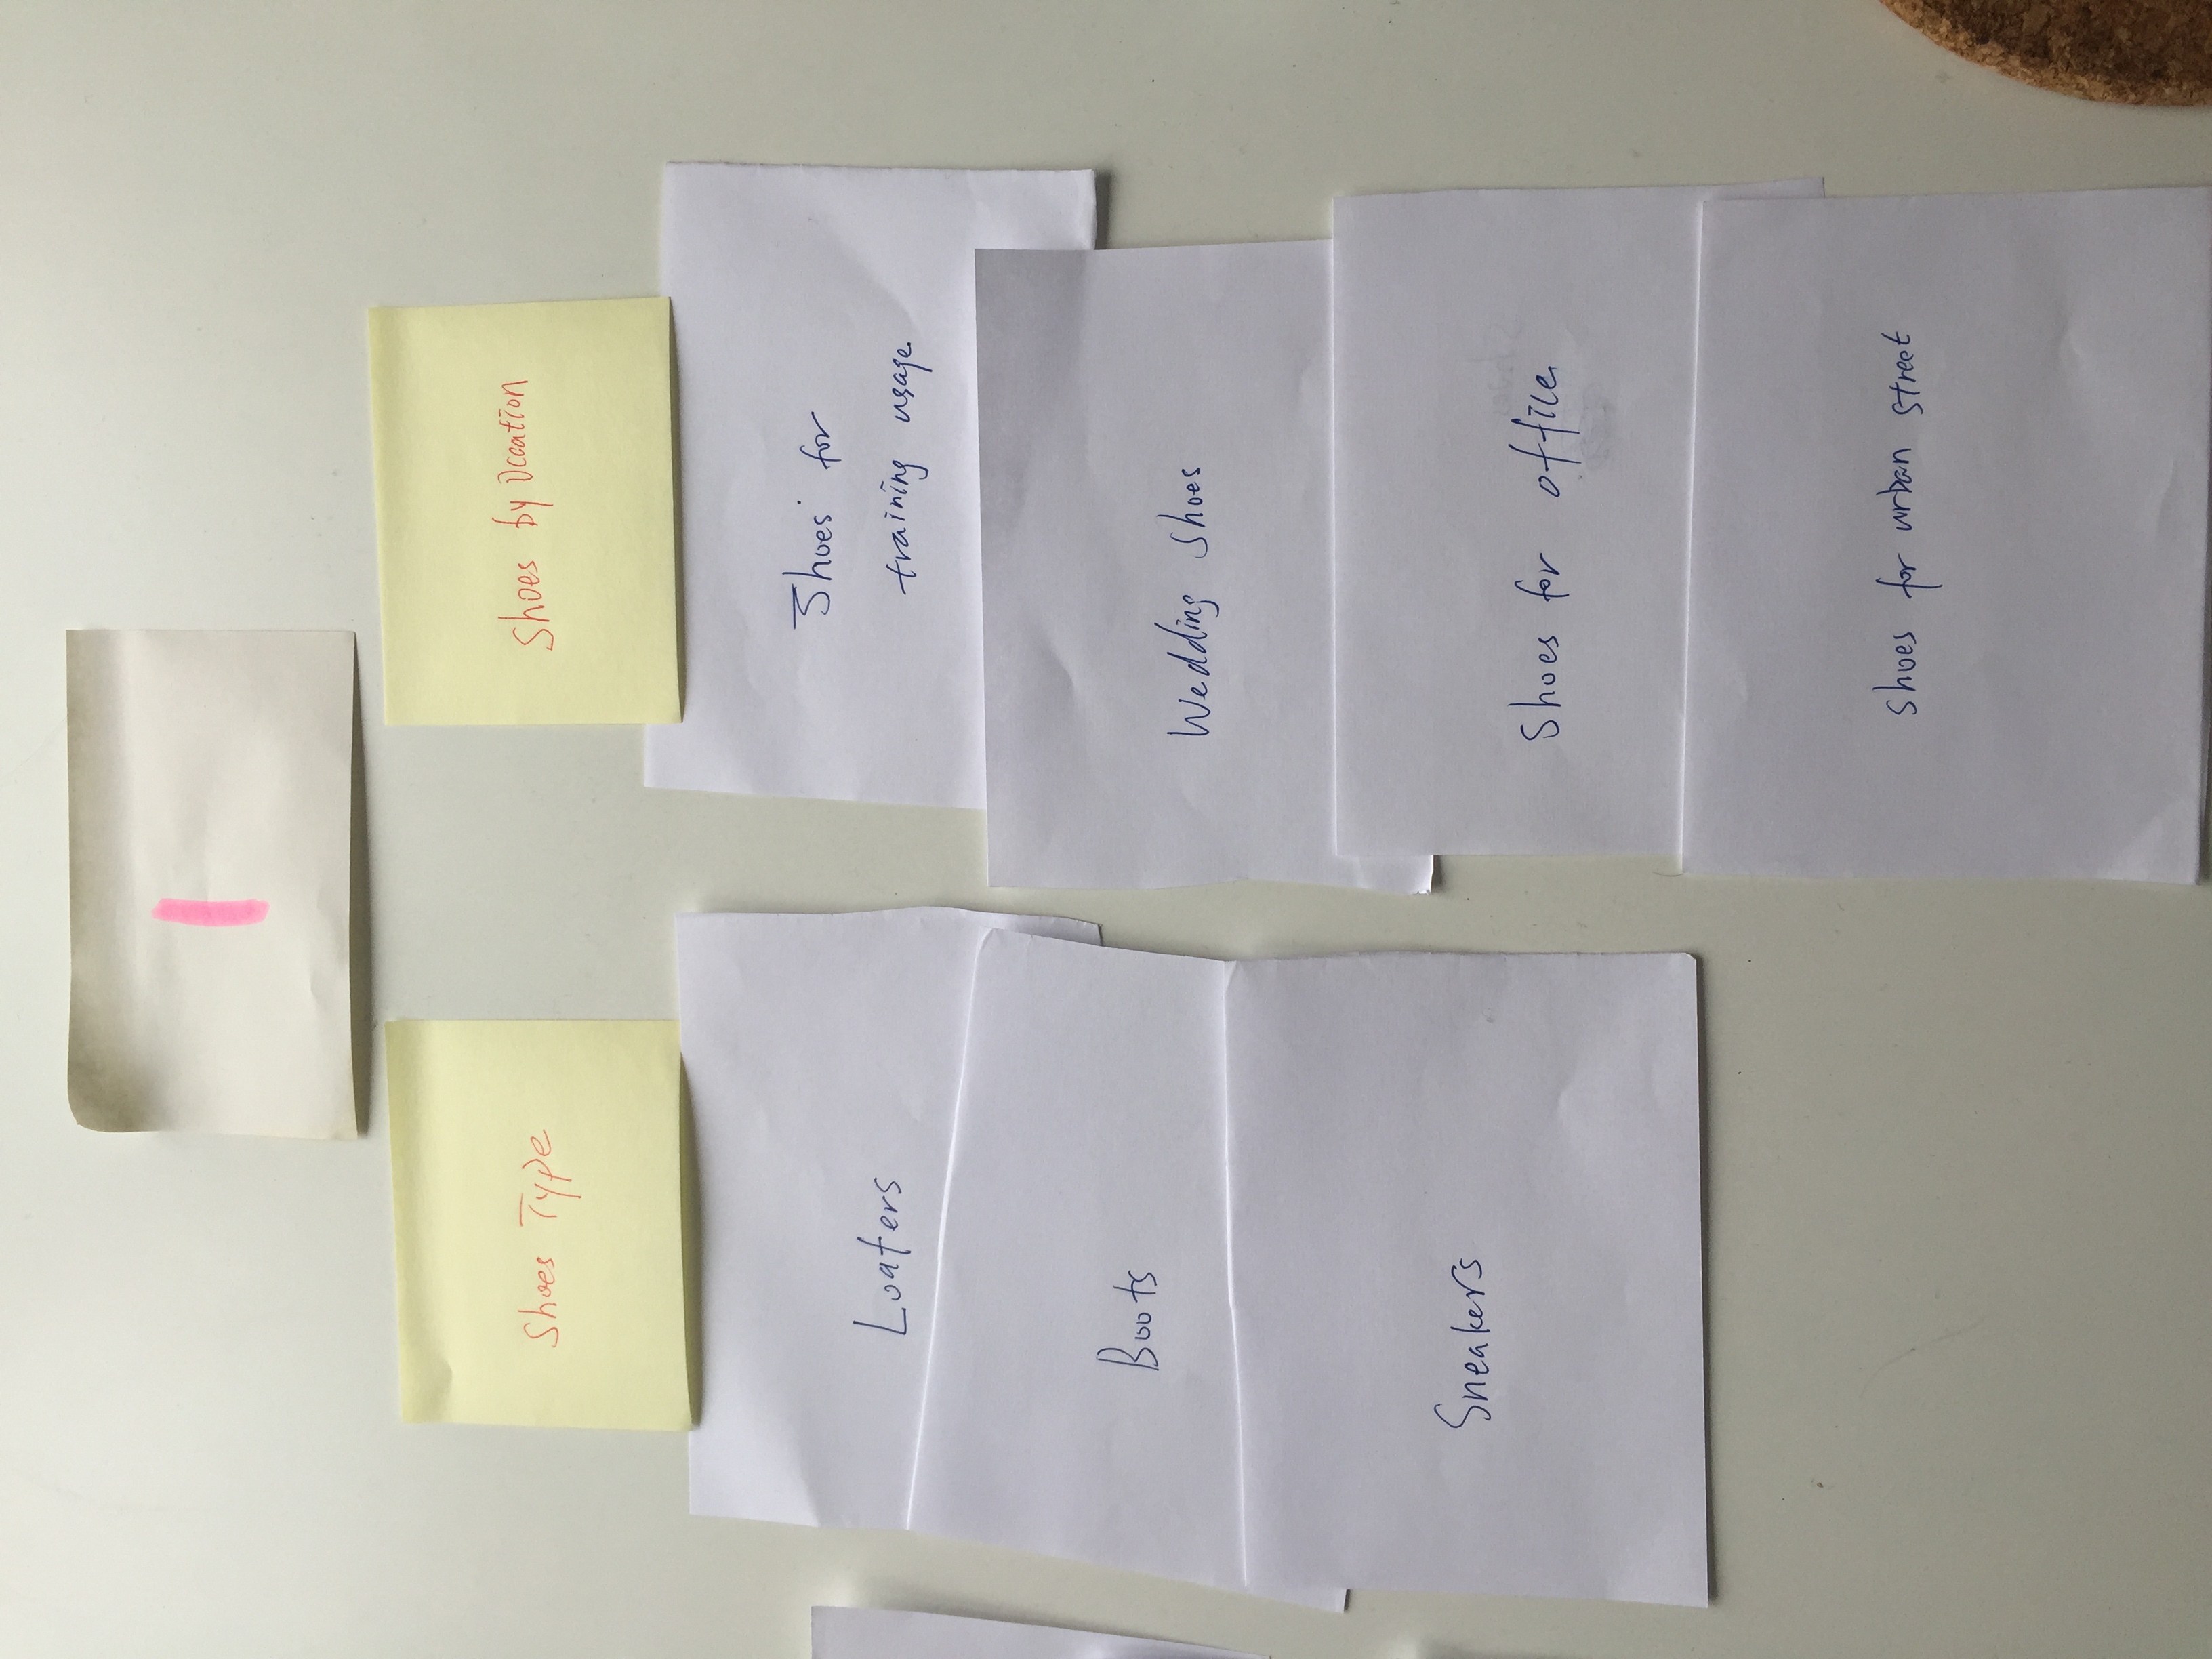 1
Shoes Type
Loafers
Boots
Sneakers
Shoes by Occation
Shoes for
training usage
Wedding shoes
Shoes for office
Shoes for urban street